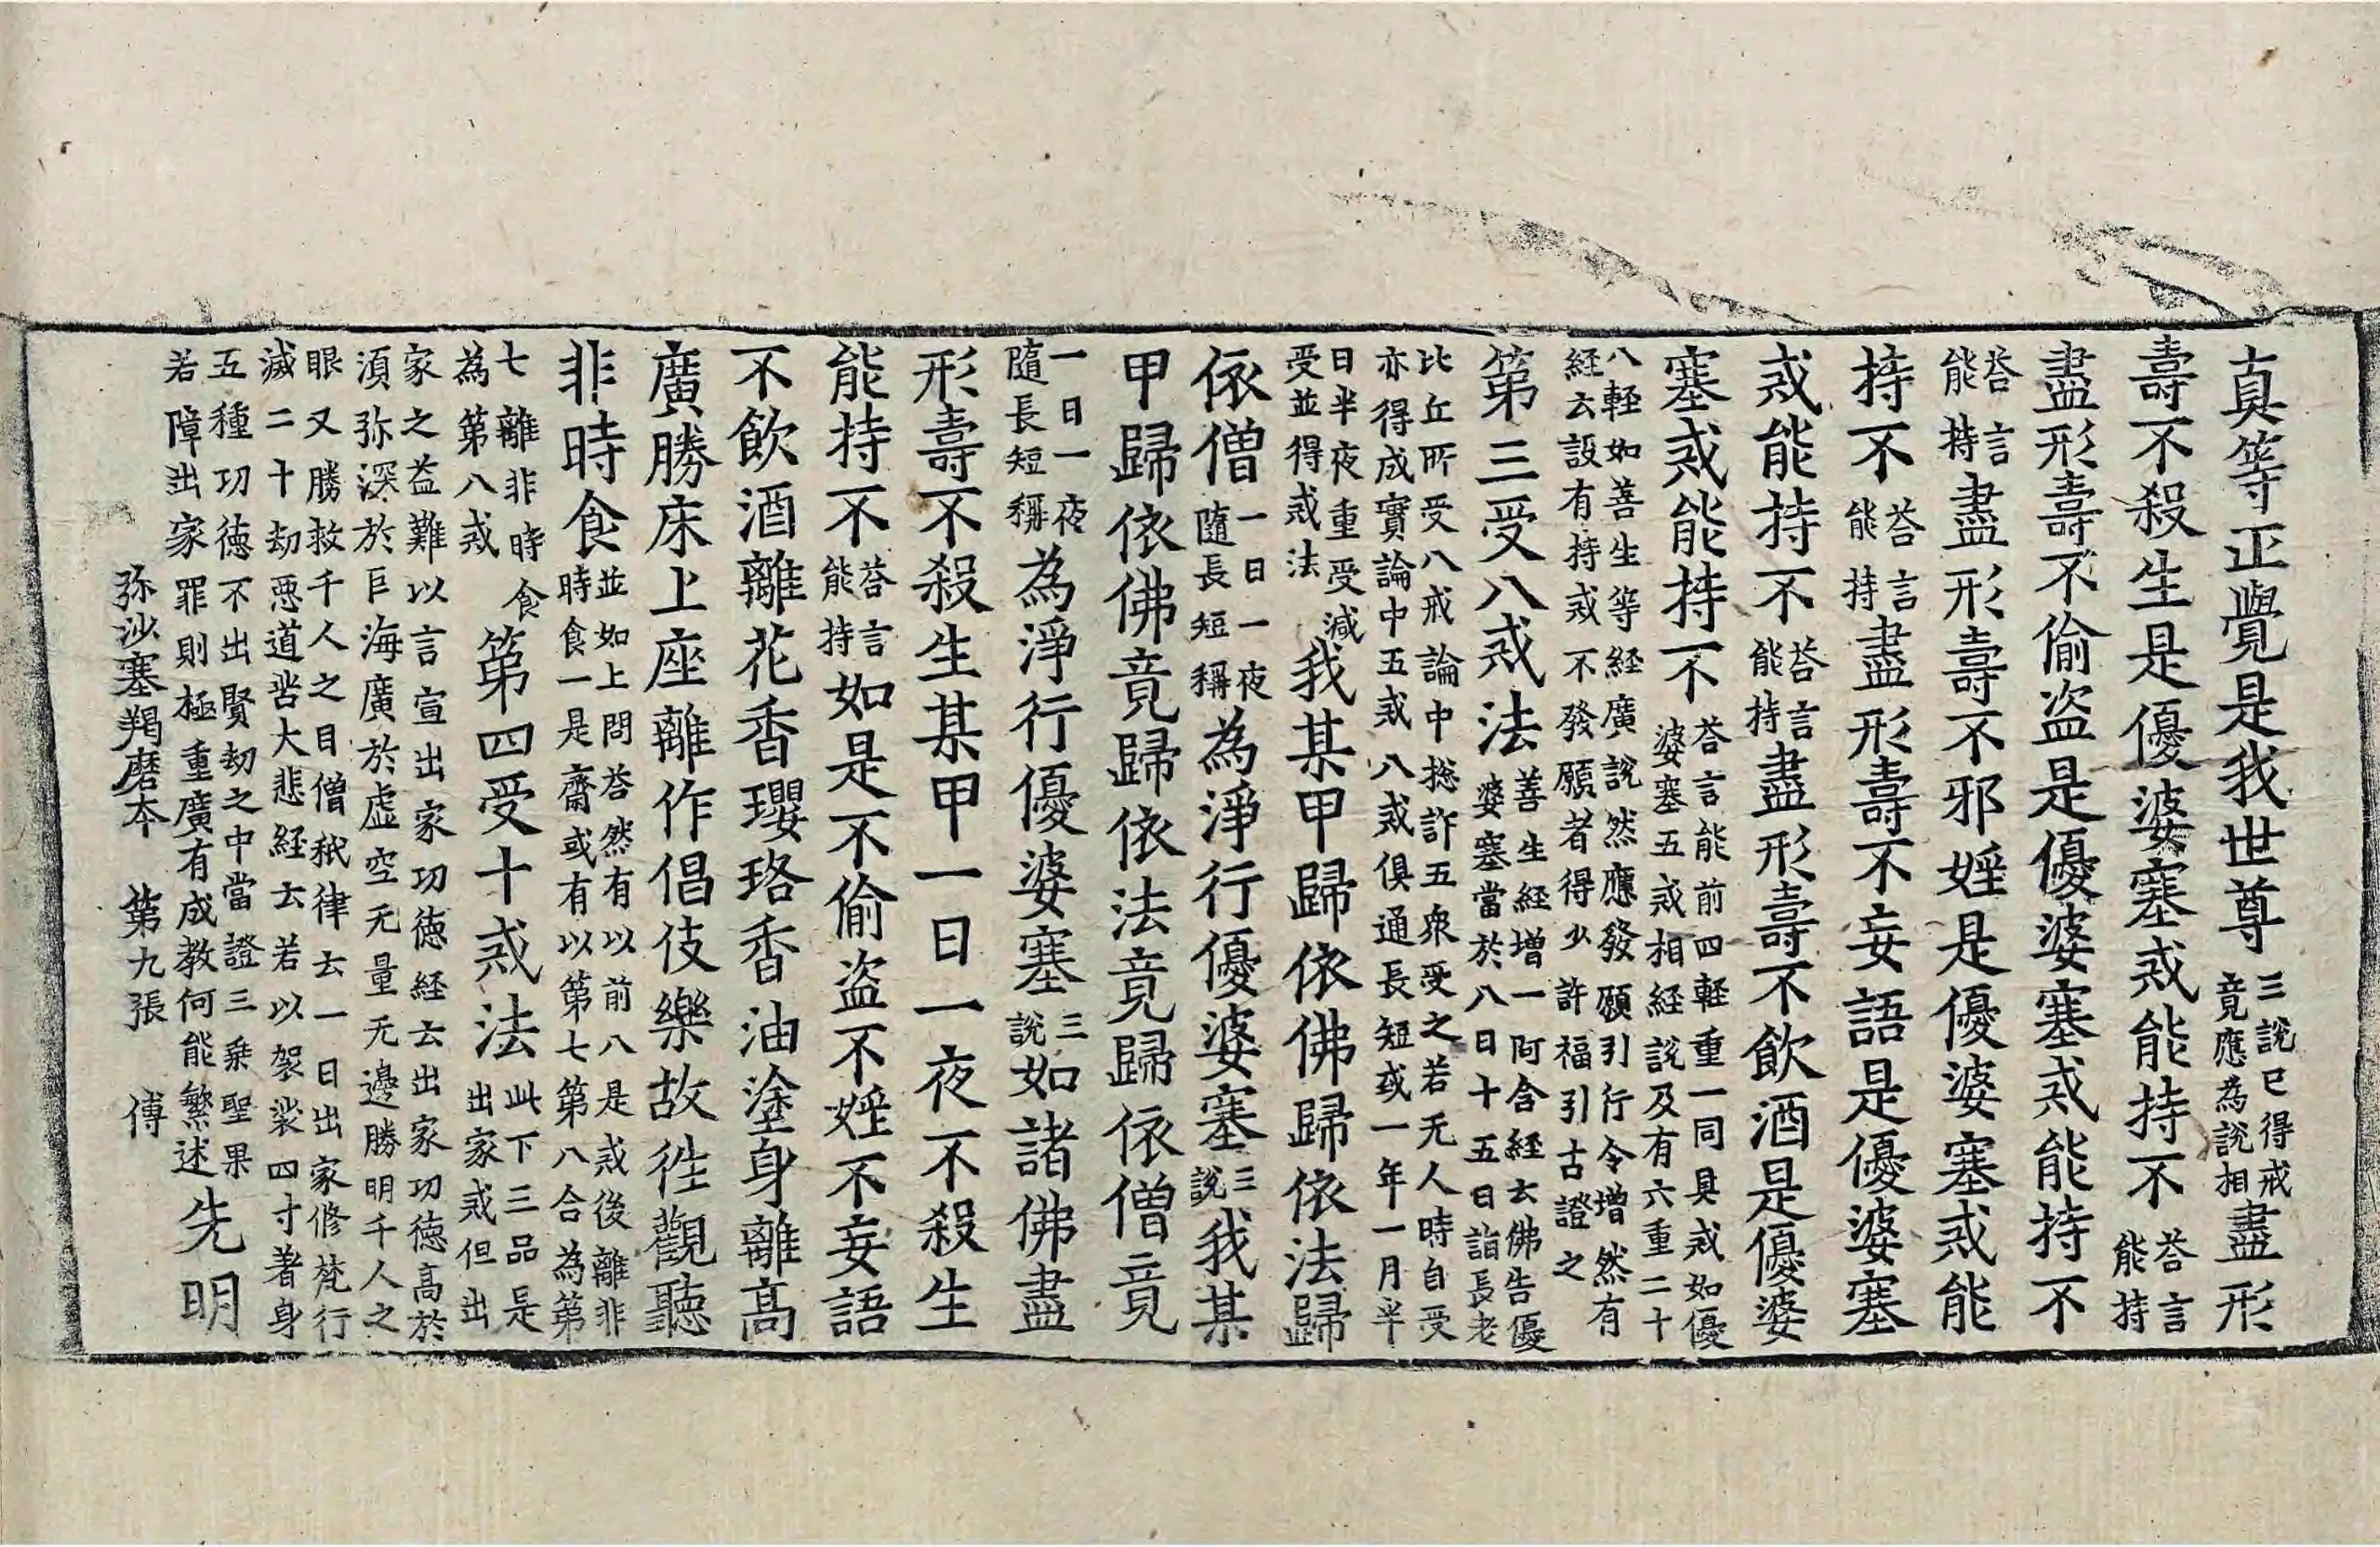 真等正覺是我世尊三說已得戒竟應為說相盡形
壽不殺生是優婆塞戒能持不荅言能持
盡形壽不偷盜是優婆塞戒能持不
荅言能持盡形壽不邪婬是優婆塞戒能
持不荅言能持盡形壽不妄語是優婆塞
戒能持不荅言能持盡形壽不飲酒是優婆
塞戒能持不荅言能前四軽重一同具戒如優婆塞五戒相經說及有六重二十
八軽如善生等経廣說然應發願引行令增然有経云設有持戒不發願者得少許福引古證之
第三受八戒法善生経增一阿含経云佛告優婆塞當於八日十五日詣長老
比丘所受八戒論中捴許五衆受之若无人時自受亦得成實論中五戒八戒俱通長短或一年一月半
日半夜重受減受並得戒法我某甲歸依佛歸依法歸
依僧一日一夜隨長短稱為淨行優婆塞三說我某
甲歸依佛竟歸依法竟歸依僧竟
一日一夜隨長短稱為淨行優婆塞三說如諸佛盡
形壽不殺生某甲一日一夜不殺生
能持不荅言能持如是不偷盜不婬不妄語
不飲酒離花香瓔珞香油塗身離高
廣勝床上座離作倡伎樂故往觀聽
非時食並如上問荅然有以前八是戒後離非時食一是齋或有以第七第八合為第
七離非時食為第八戒第四受十戒法此下三品是出家戒但出
家之益難以言宣出家功徳経云出家功徳高於湏弥深於巨海廣於虛空无量无邊勝明千人之
眼又勝救千人之目僧祇律云一日出家修梵行滅二十劫惡道苦大悲経云若以袈裟四寸著身
五種功徳不出賢劫之中當證三乗聖果若障出家罪則極重廣有成教何能繁述先明
弥沙塞羯磨本　第九張　傅